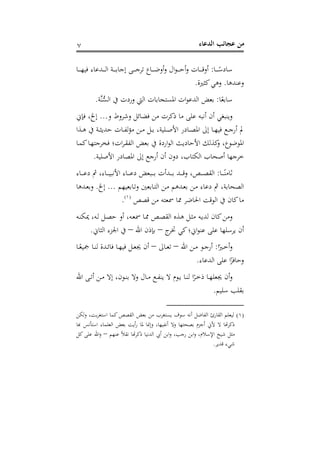 من عجائب الدعاء
٧
سادسًا: أوقات وأحوال وأوضاع ترجى إجابة الدعاء فيها
وعندها. وهي كثيرة.
سابعًا: بعض الدعوات المستجابات التي وردت في السُّنَّة.
وينبغي أن أنبه على ما ذكرت من فضائل وشروط و... إلخ، فإني
لم أرجع فيها إلى المصادر الأصلية، بل من مؤلفات حديثة في هذا
الموضوع، وكذلك الأحاديث الواردة في بعض الفقرات؛ فخرجتها كما
خرجها أصحاب الكتاب، دون أن أرجع إلى المصادر الأصلية.
ثامنًا: القصص، وقد بدأت ببعض دعاء الأنبياء، ثم دعاء
الصحابة، ثم دعاء من بعدهم من التابعين وتابعيهم ... إلخ. وبعدها
ما كان في الوقت الحاضر مما سمعته من قصص (١).
ومن كان لديه مثل هذه القصص مما سمعه، أو حصل له، يمكنه
أن يرسلها على عنواني؛ كي تخرج – بإذن الله – في الجزء الثاني.
وأخيرًا: أرجو من الله – تعالى – أن يجعل فيها فائدة لنا جميعًا
وحافزًا على الدعاء.
وأن يجعلها ذخرًا لنا يوم لا ينفع مال ولا بنون، إلا من أتى الله
بقلب سليم.
(١) ليعلم القارئ الفاضل أنه سوف يستغرب من بعض القصص كما استغربت، ولكن
ذكرتها لا لأني أجزم بصحتها ولا أنفيها، وإنما لما رأيت بعض العلماء استأنس بها
مثل شيخ الإسلام، وابن رجب، وابن أبي الدنيا ذكرتها نقلاً عنهم – والله على كل
شيء قدير.